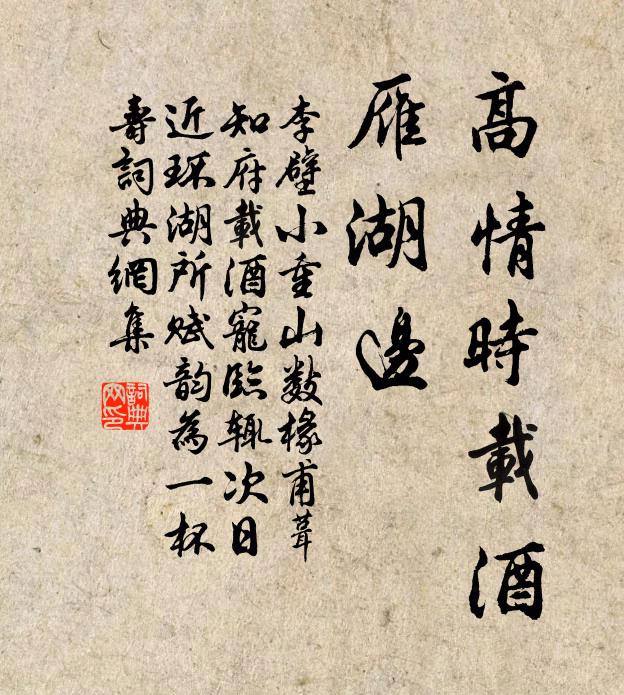 高情時載酒
雁湖邊
李壁小重山數椽甫葺
知府載酒寵臨輒次日
近環湖所賦韵為一杯
壽詞典網集
詞典
网印